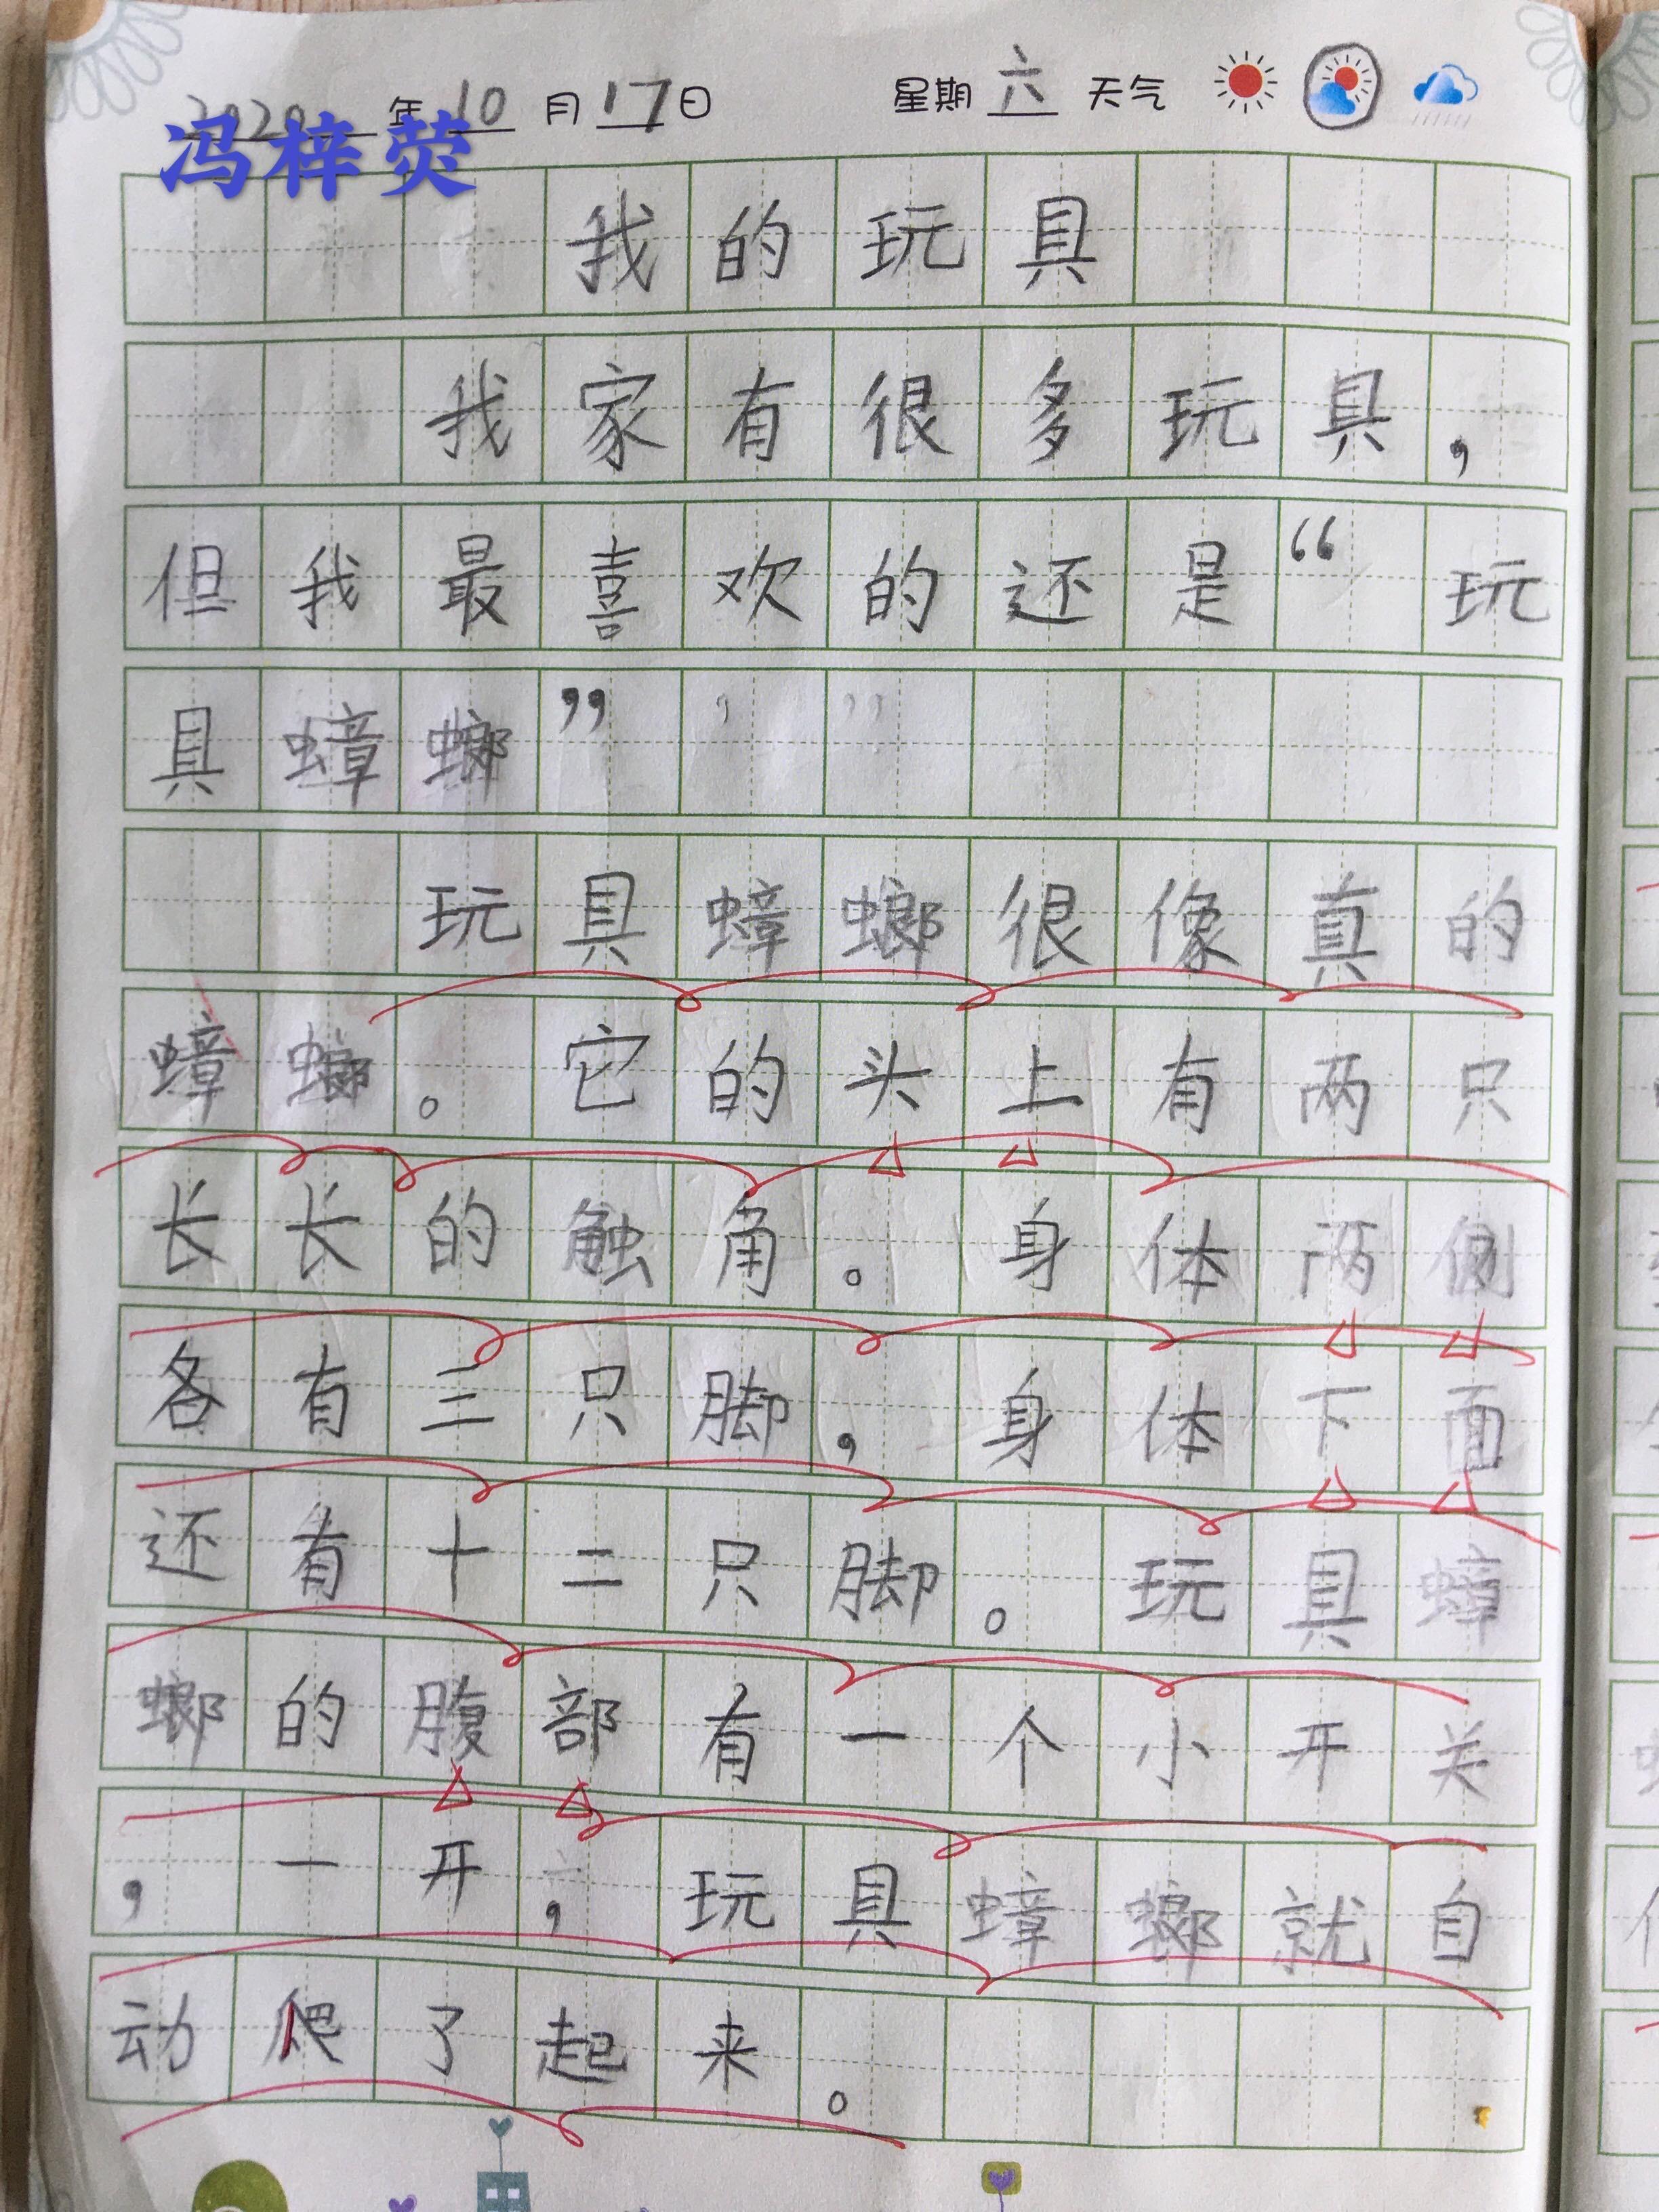 2020年10月17日 星期六 天气
冯梓荧
我的玩具
我家有很多玩具，
但我最喜欢的还是“玩
具蟑螂”
玩具蟑螂很像真的
蟑螂。它的头上有两只
长长的触角。身体两侧
各有三只脚，身体下面
还有十二只脚。玩具蟑
螂的腹部有一个小开关
，一开，玩具蟑螂就自
动爬了起来。